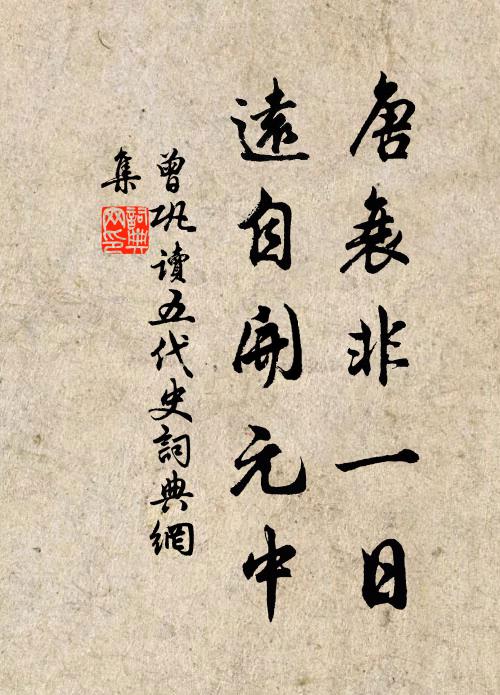 唐衰非一日
遠自開元中
曾鞏讀五代史詞典網
集
詞典網印